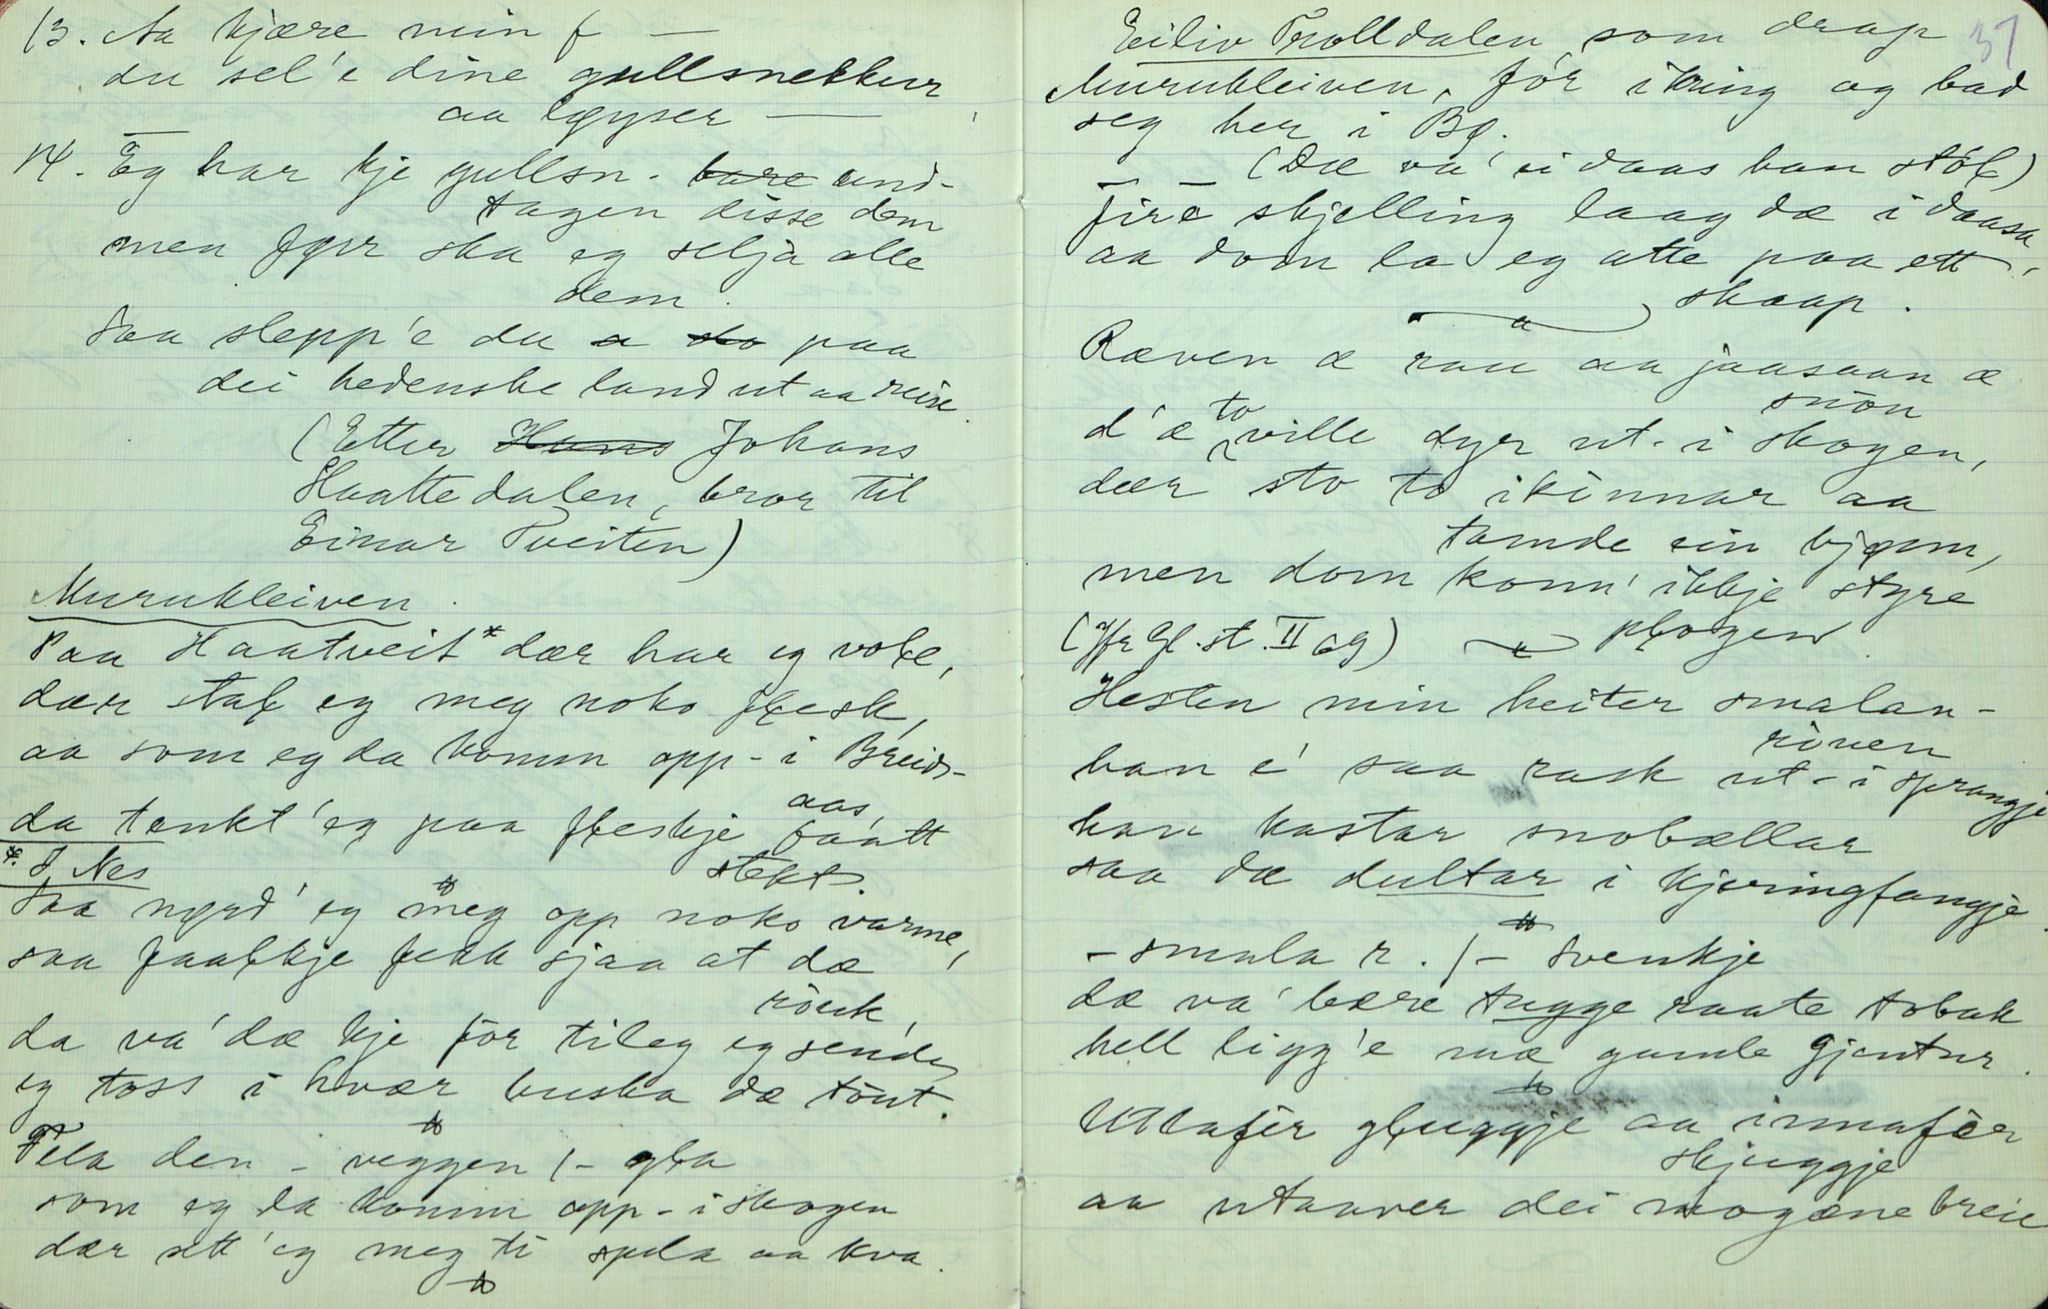 13. Aa kjære min f —
du sel'e dine gullsnekkur
aa løyser —
14. Eg har kje gullsn. bare und-
tagen disse dem
men før ska eg selja alle
dem.
Saa slepp'e du a slo paa
dei hedenske land ut aa reise.
(Etter Hans Johans
Haattedalen, bror til
Einar Tveiten)
Murukleiven.
Paa Haatveit* dær har eg voḷe,
dær staḷ eg meg noko fḷesk,
aa som eg da komm opp-i Breids-
aas,
da tenkt'eg paa fḷeskje faatt
stekt.
*. I Nes
Saa nørd'eg meg opp noko varme,
saa faaḷkje fekk sjaa at dæ
röuk,
da va'dæ kje för til eg eg sende
eg toss i hvær buska dæ töut.
Fela den – veggen /– gḷa
som eg da komm opp-i skogen
dær sett'eg meg ti spela aa kva.
37
Eiliv Trolldalen, som drap
Murukleiven, fór ikring og bad
seg her i Bø.
— — (Dæ va' ei daas han stóḷ)
fire skjelling laag dæ i daasa,
aa dom la eg atte paa ett
skaap.
Ræven æ rau aa jaasaan æ
snöu
d'æ to ville dyr ut-i skogen,
dær sto to ikinnar aa
tamde ein bjønn,
men dom konn' ikkje styre
pḷogen
(Jfr Gl. st. II 69)
Hesten min heiter smalan-
röuen
han é saa rask ut-i sprangje
han kastar snobællar
saa dæ dultar i kjeringfangje.
– smala r. /– svenkje
dæ va' bære tugge raate tobak
hell ligg'e mæ gamle gjentur.
Uttafér gḷuggje aa innafér
skjuggje
aa utaaver dei mogæne breie